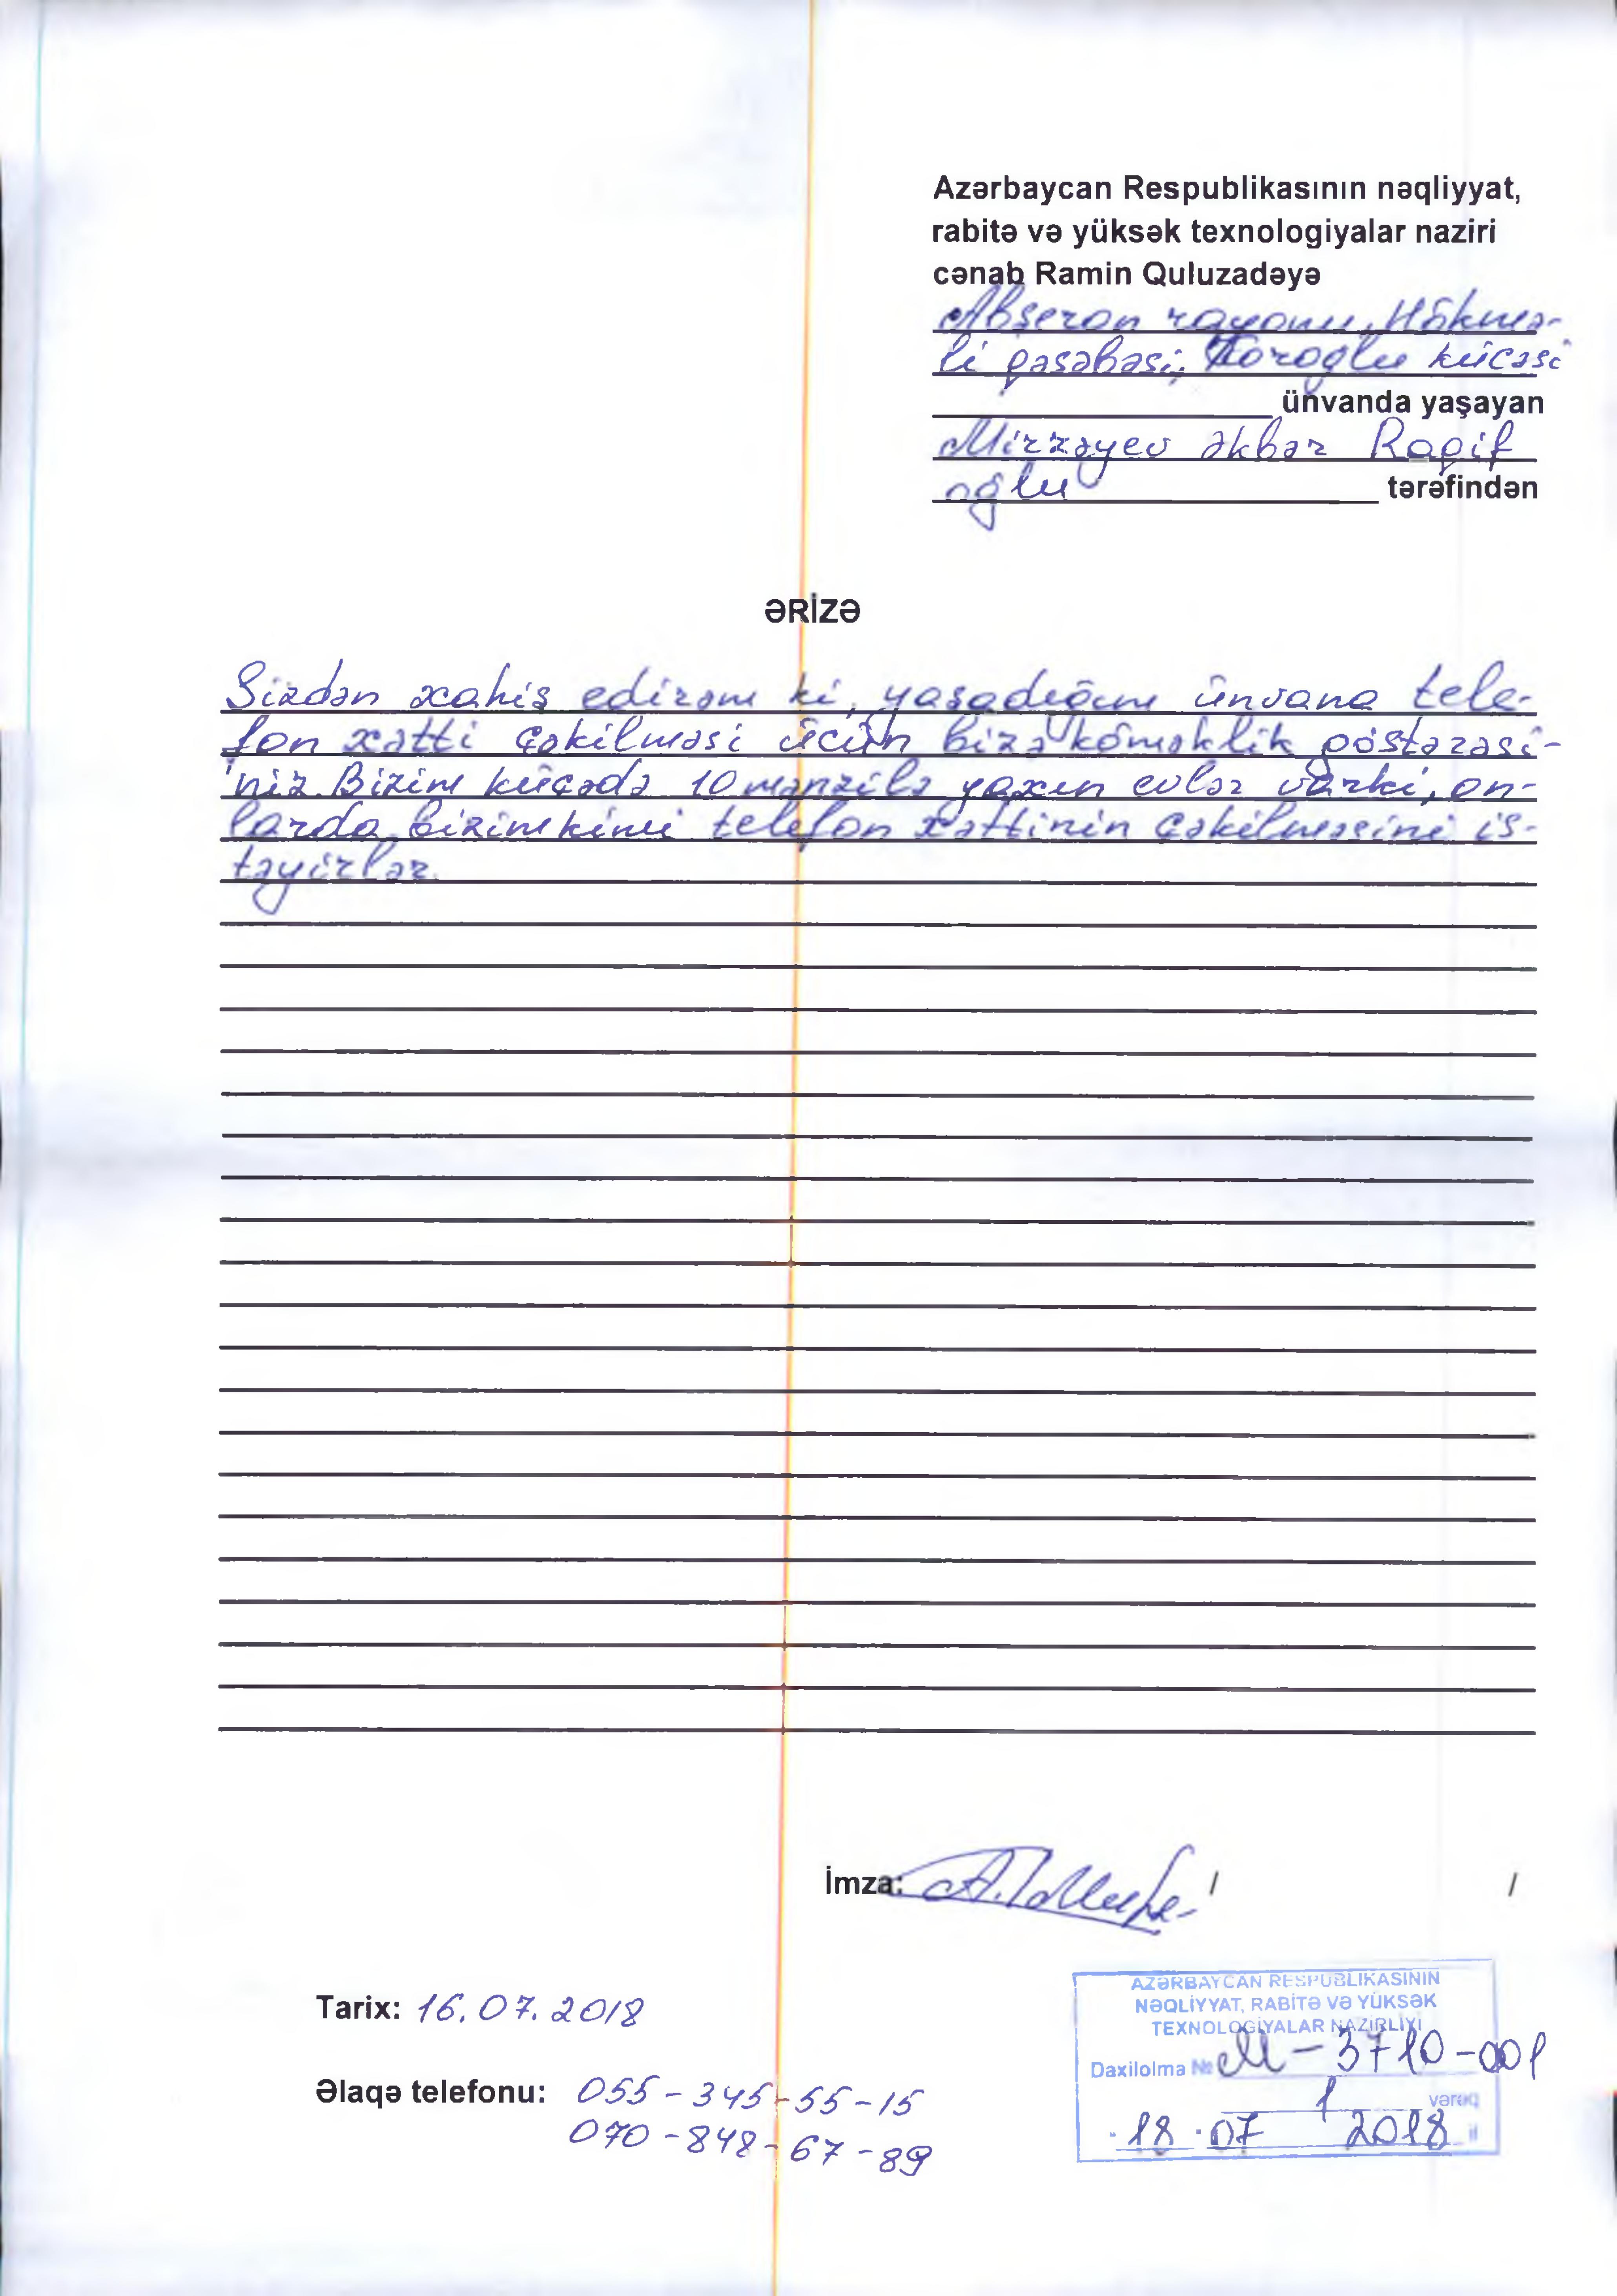 Azərbaycan Respublikasının nəqliyyat,
rabitə və yüksək texnologiyalar naziri
cənab Ramin Quluzadəyə
Abşeron rayonu, Hökmə-
li qəsəbəsi, Koroğlu küçəsi
ünvanda yaşayan
Mirzəyev Əkbər Raqif
oğlu tərəfindən
ƏRİZƏ
Sizdən xahiş edirəm ki, yaşadığım ünvana tele-
fon xətti çəkilməsi üçün bizə köməklik göstərəsi-
niz. Bizim küçədə 10 mənzilə yaxın evlər varki, on-
larda bizim kimi telefon xəttinin çəkilməsini is-
təyirlər.
İmza: / /
Tarix: 16.07.2018
Əlaqə telefonu: 055-345-55-15
070-848-67-89
AZƏRBAYCAN RESPUBLİKASININ
NƏQLİYYAT, RABİTƏ VƏ YÜKSƏK
TEXNOLOGİYALAR NAZİRLİYİ
Daxilolma № M-3710-001
1 vərəq
18.07 2018 il